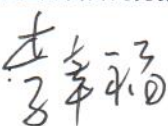 李幸福